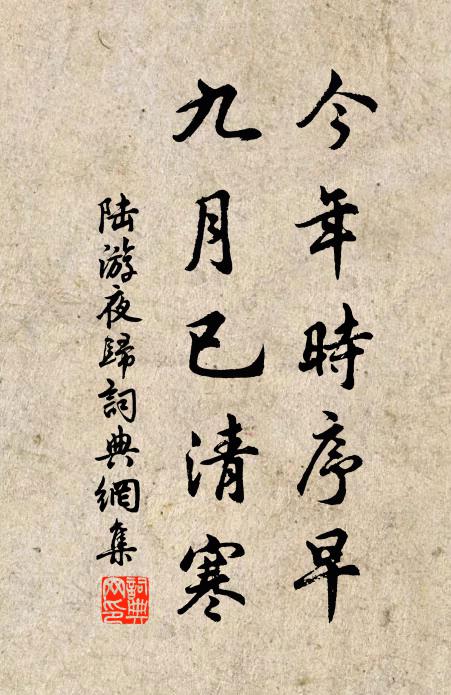 今年時序早
九月已清寒
陸游夜歸詞典網集
詞典
網印